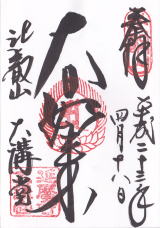 奉拝
平成二十三年
四月十八日
大日如来
比叡山
大講堂